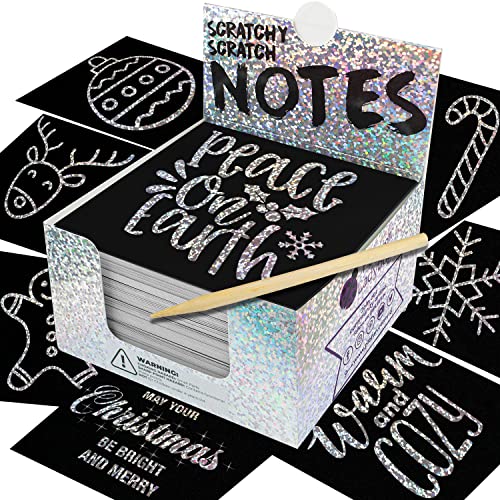 SCRATCHY
SCRATCH
NOTES
Peace
on
Earth
WARNING:
MAY YOUR
Christmas
BE BRIGHT
AND MERRY
Warm
and
COZY